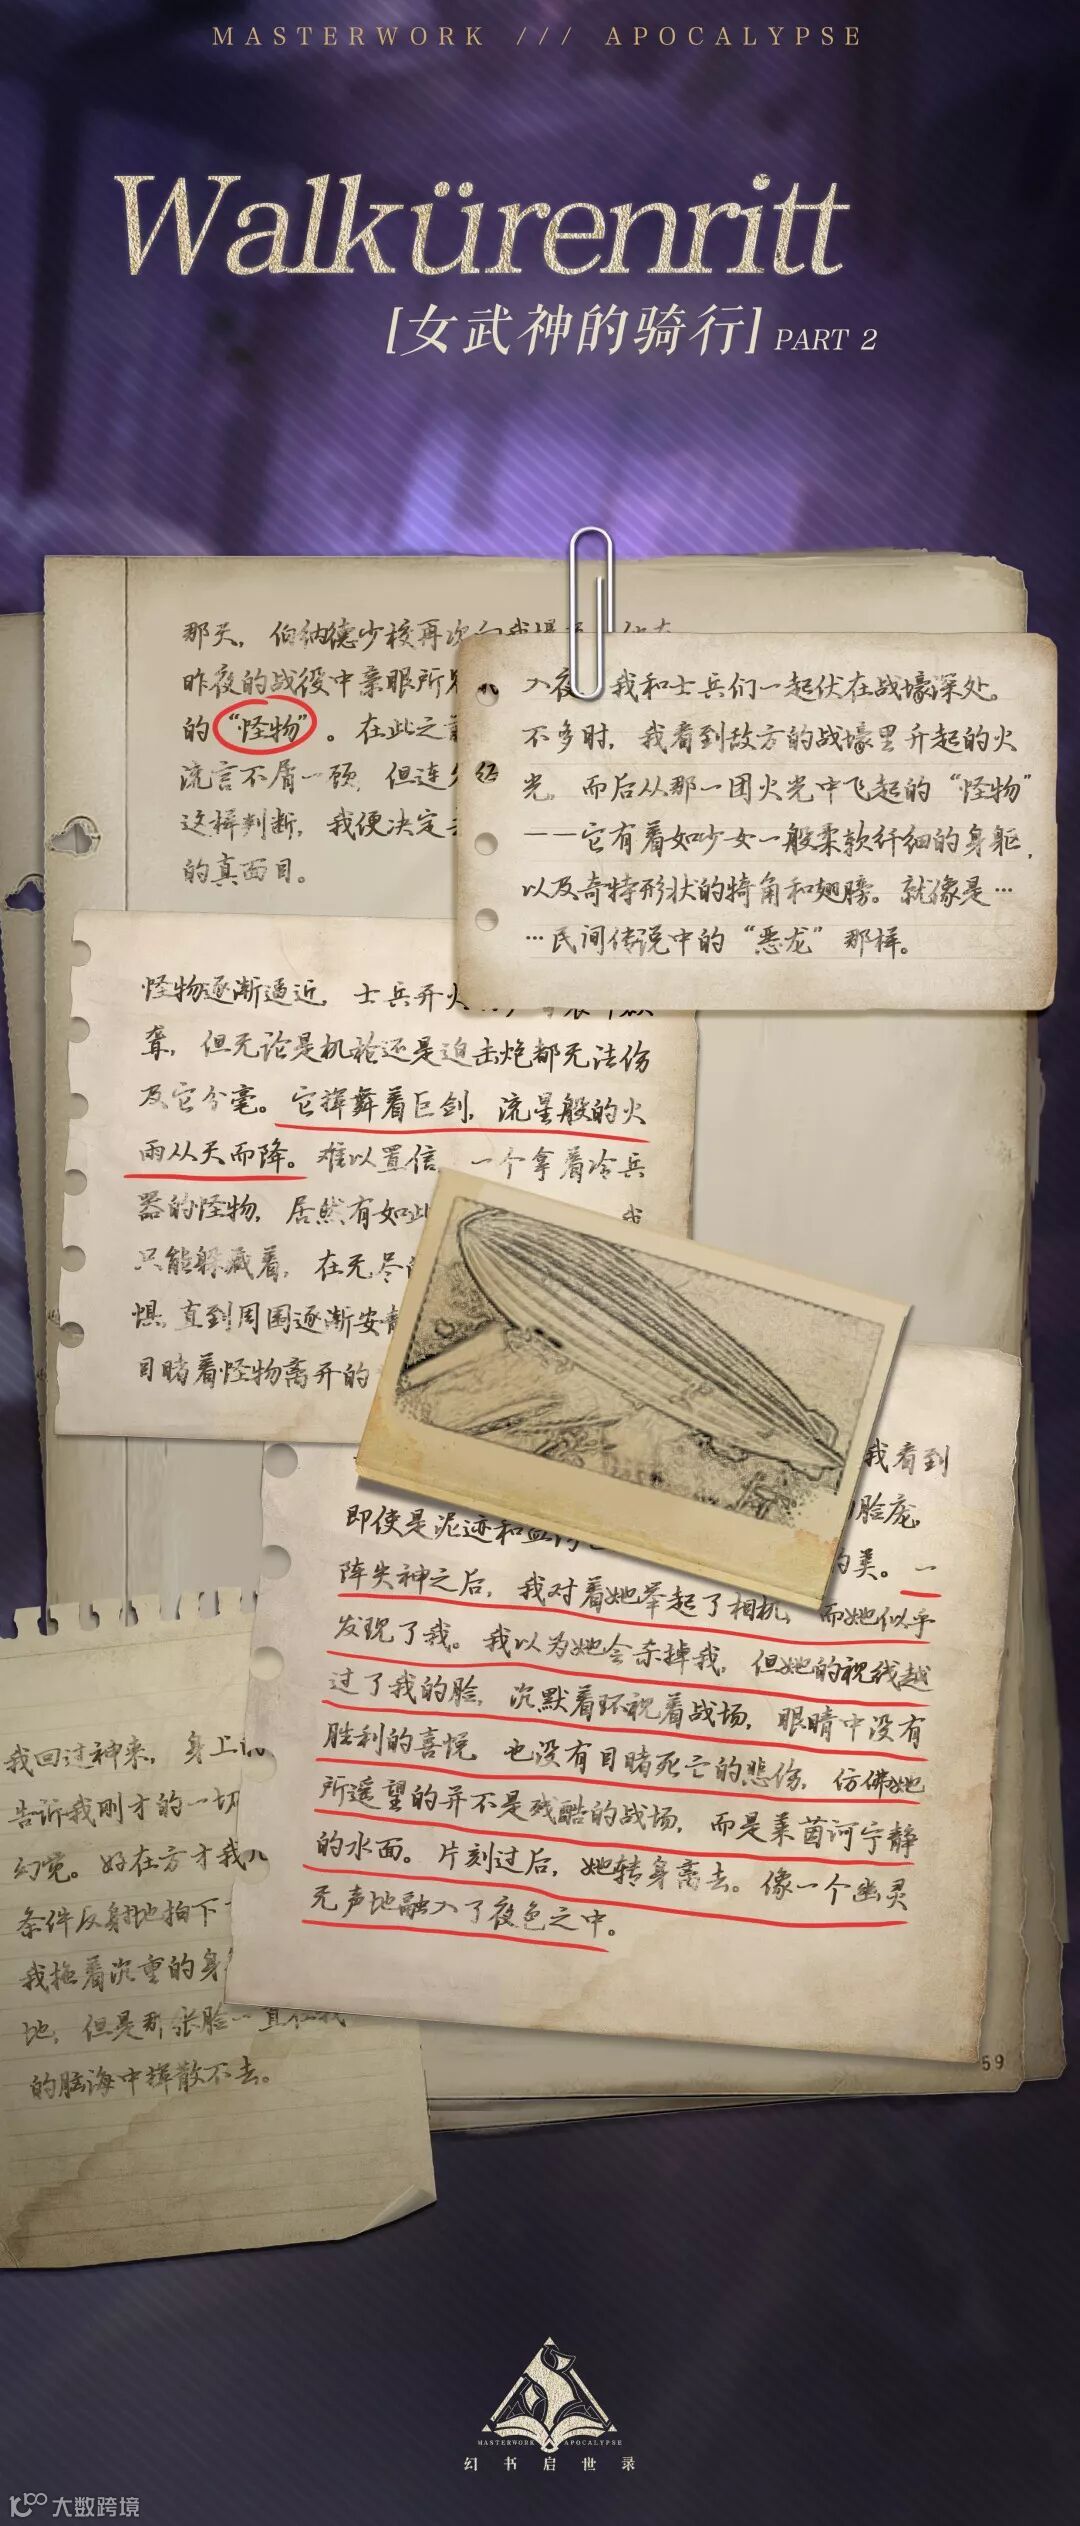 MASTERWORK /// APOCALYPSE
Walkürenritt
[女武神的骑行] PART 2
那天，伯纳德少校再次向我
昨夜的战役中亲眼所见
的“怪物”。在此之前
流言不屑一顾，但连
这样判断，我便决定
的真面目。
入夜，我和士兵们一起伏在战壕深处。
不多时，我看到敌方的战壕里升起的火
光，而后从那一团火光中飞起的“怪物”
——它有着如少女一般柔软纤细的身躯，
以及奇特形状的犄角和翅膀。就像是…
…民间传说中的“恶龙”那样。
怪物逐渐逼近，士兵开火
聋，但无论是机枪还是迫击炮都无法伤
及它分毫。它挥舞着巨剑，流星般的火
雨从天而降。难以置信，一个拿着冷兵
器的怪物，居然有如此 我
只能躲藏着，在无尽
惧，直到周围逐渐安静
目睹着怪物离开的
我看到
即使是泥迹和血 脸庞，
的美。一
阵失神之后，我对着她举起了相机，而她似乎
发现了我。我以为她会杀掉我，但她的视线越
过了我的脸，沉默着环视着战场，眼睛中没有
胜利的喜悦，也没有目睹死亡的悲伤，仿佛她
所遥望的并不是残酷的战场，而是莱茵河宁静
的水面。片刻过后，她转身离去。像一个幽灵
无声地融入了夜色之中。
我回过神来，身上
告诉我刚才的一切
幻觉。好在方才我
条件反射地拍下
我拖着沉重的身
地，但是那张脸一直在我
的脑海中挥散不去。
59
MASTERWORK APOCALYPSE
幻书启世录
大数跨境